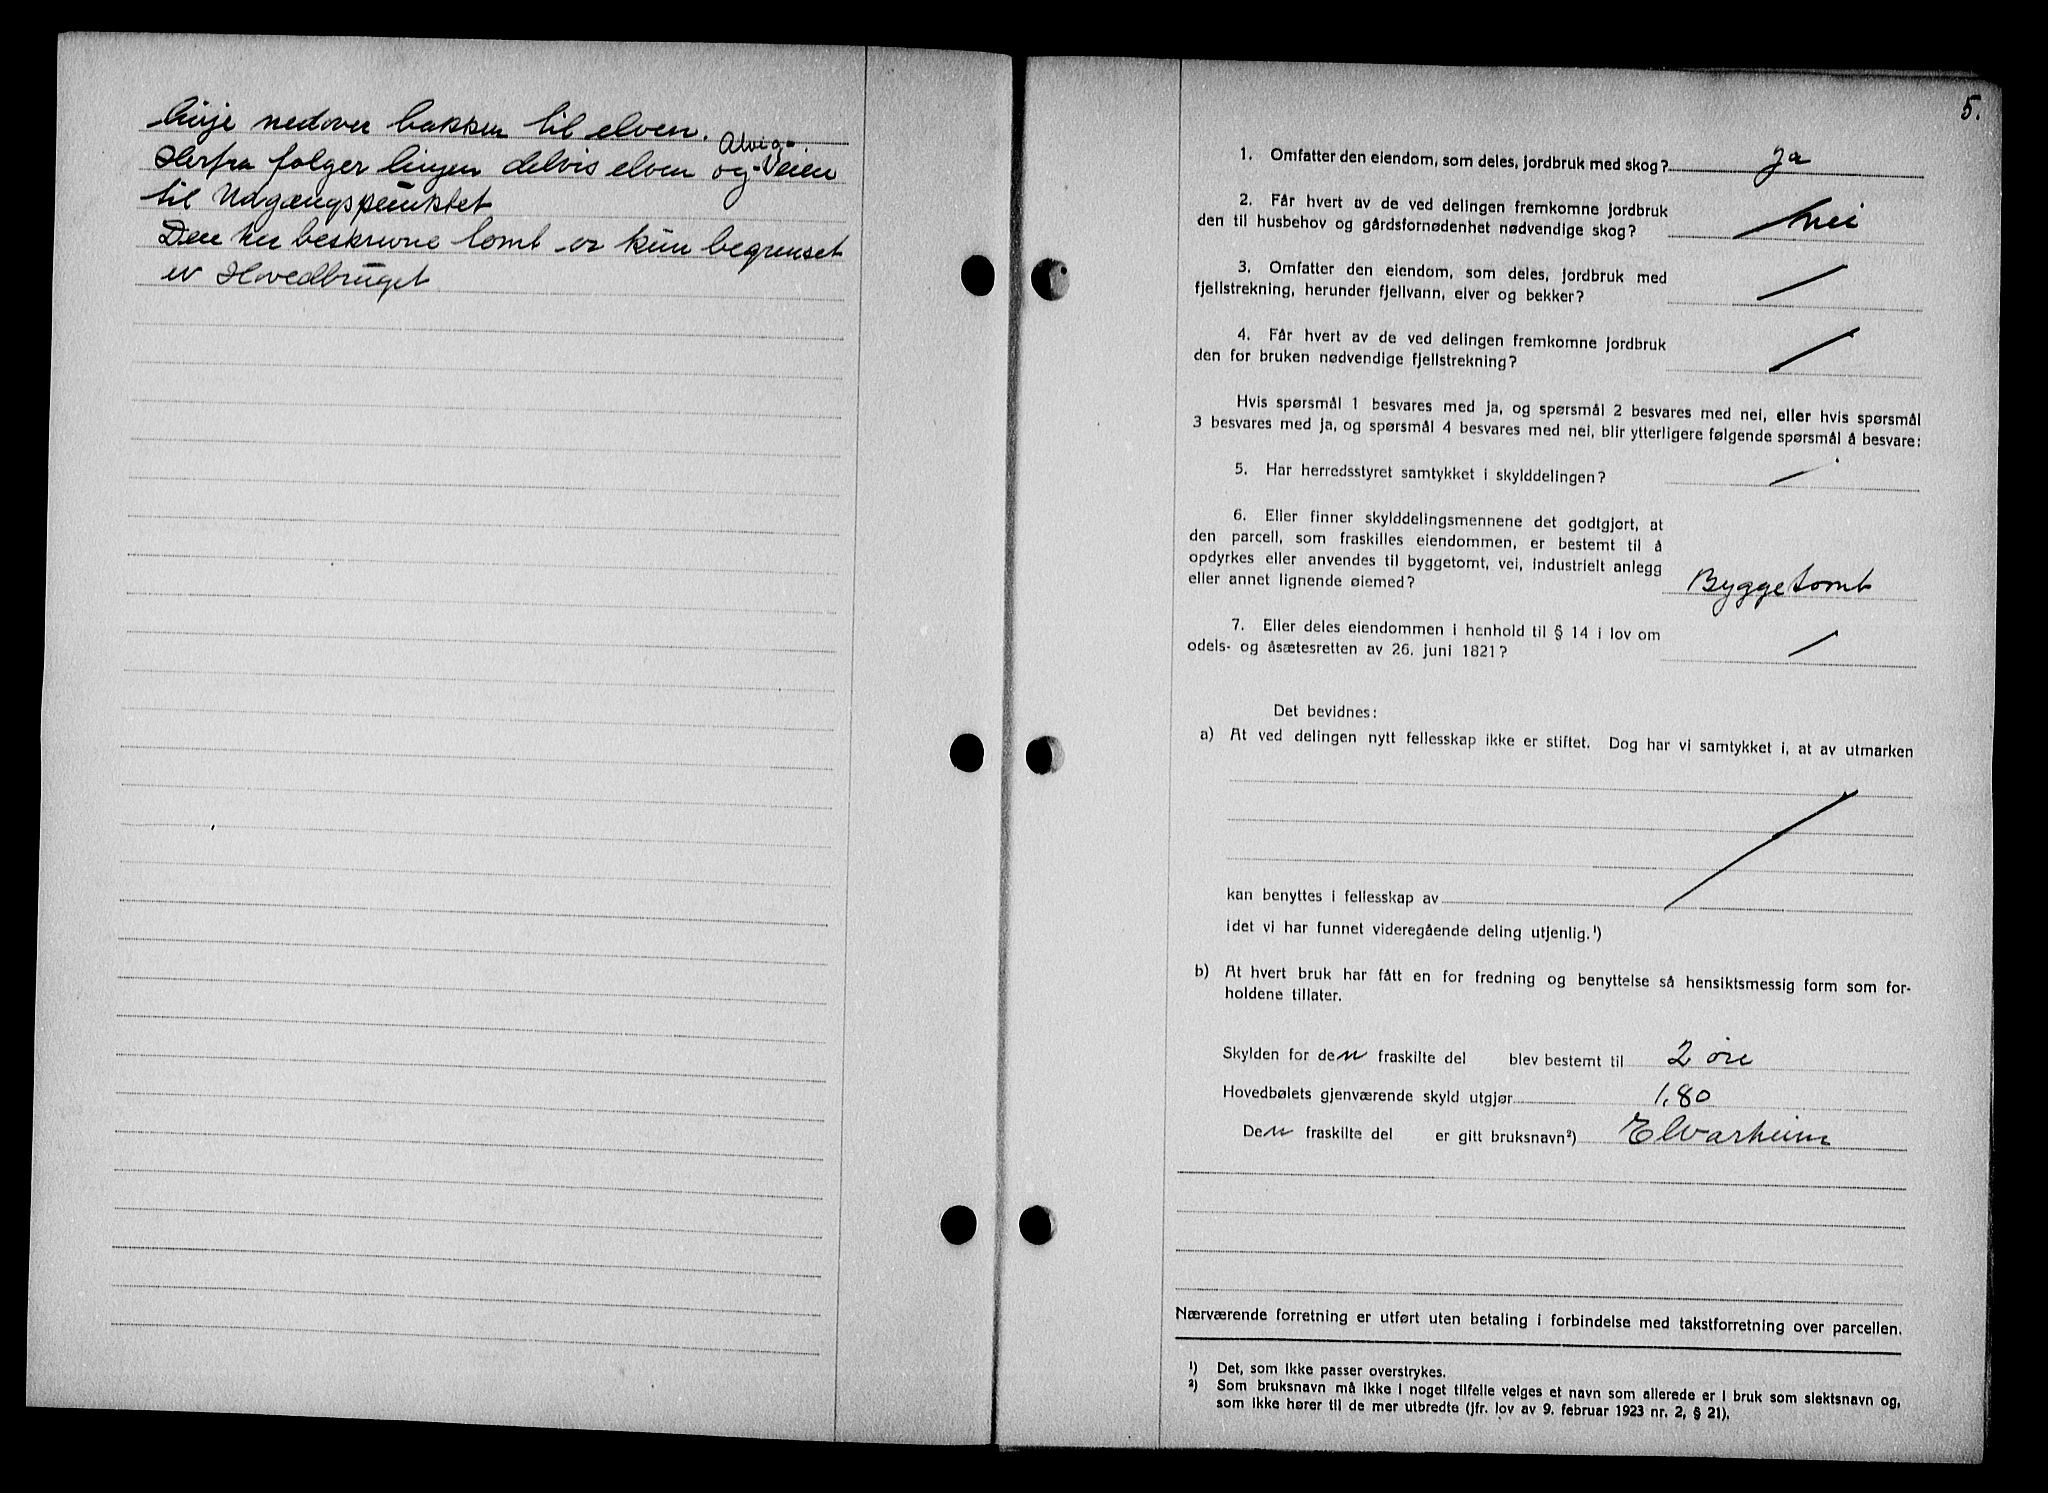 linje nedover bakken til elven.
Alvig-
Herfra følger linjen delvis elven og Veien
til Udgangspunktet
Den her beskrevne tomt er kun begrenset
av Hovedbruget
5.
1. Omfatter den eiendom, som deles, jordbruk med skog? ja
2. Får hvert av de ved delingen fremkomne jordbruk
den til husbehov og gårdsfornødenhet nødvendige skog? nei
3. Omfatter den eiendom, som deles, jordbruk med
fjellstrekning, herunder fjellvann, elver og bekker? /
4. Får hvert av de ved delingen fremkomne jordbruk
den for bruken nødvendige fjellstrekning? /
Hvis spørsmål 1 besvares med ja, og spørsmål 2 besvares med nei, eller hvis spørsmål
3 besvares med ja, og spørsmål 4 besvares med nei, blir ytterligere følgende spørsmål å besvare:
5. Har herredsstyret samtykket i skylddelingen? /
6. Eller finner skylddelingsmennene det godtgjort, at
den parcell, som fraskilles eiendommen, er bestemt til å
opdyrkes eller anvendes til byggetomt, vei, industrielt anlegg
eller annet lignende øiemed? Byggetomt
7. Eller deles eiendommen i henhold til § 14 i lov om
odels- og åsætesretten av 26. juni 1821? /
Det bevidnes:
a) At ved delingen nytt fellesskap ikke er stiftet. Dog har vi samtykket i, at av utmarken
kan benyttes i fellesskap av
idet vi har funnet videregående deling utjenlig.¹)
b) At hvert bruk har fått en for fredning og benyttelse så hensiktsmessig form som for-
holdene tillater.
Skylden for den fraskilte del blev bestemt til 2 øre
Hovedbølets gjenværende skyld utgjør 1,80
Den fraskilte del er gitt bruksnavn²) Elvarheim
Nærværende forretning er utført uten betaling i forbindelse med takstforretning over parcellen.
¹) Det, som ikke passer overstrykes.
²) Som bruksnavn må ikke i noget tilfelle velges et navn som allerede er i bruk som slektsnavn og,
som ikke hører til de mer utbredte (jfr. lov av 9. februar 1923 nr. 2, § 21).